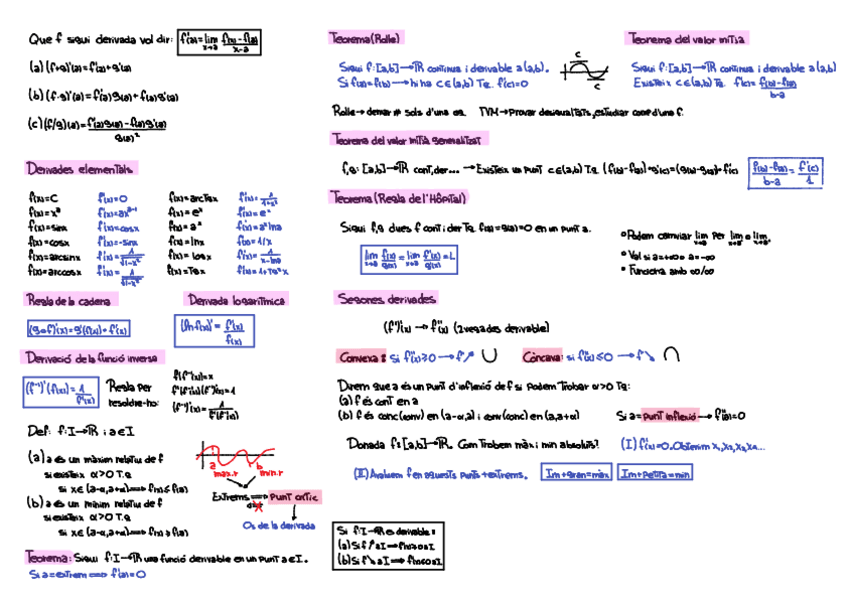 Que f sigui derivada vol dir: f'(a)=lim x→a f(x)-f(a)/x-a
(a) (f+g)'(a)=f'(a)+g'(a)
(b) (f·g)'(a)=f'(a)g(a)+f(a)g'(a)
(c) (f/g)'(a)=f'(a)g(a)-f(a)g'(a)/g(a)²
Derivades elementals
f(x)=c f'(x)=0 f(x)=arctax
f(x)=sinx f'(x)=cosx
f(x)=cosx f'(x)=-sinx f(x)=lnx f'(x)=1/x
f(x)=arcsinx
f(x)=arccosx f(x)=Tax f'(x)=1+Ta²x
Regla de la cadena Derivada logarítmica
(g∘f)'(x)=g'(f(x))·f'(x) (ln f(x))'=f'(x)/f(x)
Derivació de la funció inversa
(f⁻¹)'(f(x))=1/f'(x) Regla per resoldre-ho:
f(f⁻¹(x))=x
f'(f⁻¹(x))(f⁻¹)'(x)=1
(f⁻¹)'(x)=1/f'(f⁻¹(x))
Def: f:I→ℝ i a∈I
(a) a és un màxim relatiu de f
si existeix α>0 T.q
si x∈(a-α,a+α)⟹f(x)≤f(a)
(b) a és un mínim relatiu de f
si existeix α>0 T.q
si x∈(a-α,a+α)⟹f(x)≥f(a)
a b
max.r min.r
Extrems ⟹ punt crític
0s de la derivada
Teorema: Sigui f:I→ℝ una funció derivable en un punt a∈I.
Si a=extrem ⟹ f'(a)=0
Teorema (Rolle)
Sigui f:[a,b]→ℝ contínua i derivable a (a,b).
Si f(a)=f(b)→hi ha c∈(a,b) Tq. f'(c)=0
c
c
Teorema del valor mitjà
Sigui f:[a,b]→ℝ contínua i derivable a (a,b)
Existeix c∈(a,b) Tq. f'(c)=f(b)-f(a)/b-a
Rolle→demar # sols d'una eq. TVM→Provar desigualtats, estudiar coop d'una f.
Teorema del valor mitjà generalitzat
f,g:[a,b]→ℝ cont,der...→Existeix un punt c∈(a,b) T.q (f(b)-f(a))·g'(c)=(g(b)-g(a))·f'(c)
f(b)-f(a)/b-a=f'(c)/1
Teorema (Regla de l'Hôpital)
Sigui f,g dues f cont i der Tq f(a)=g(a)=0 en un punt a.
lim x→a f(x)/g(x)=lim x→a f'(x)/g'(x)=L
• Podem canviar lim x→a per lim x→a⁺ o lim x→a⁻.
• Val si a=+∞ o a=-∞
• Funciona amb ∞/∞
Segones derivades
(f')'(x)→f''(x) (2 vegades derivable)
Convexa: si f''(x)≥0→f'↗ ∪ Còncava: si f''(x)≤0→f'↘ ∩
Direm que a és un punt d'inflexió de f si podem trobar α>0 Tq:
(a) f és cont en a
(b) f és conc(conv) en (a-α,a) i conv(conc) en (a,a+α) Si a=punt inflexió→f''(a)=0
Donada f:[a,b]→ℝ. Com trobem màx i min absoluts? (I) f'(x)=0. Obtenim x₁,x₂,x₃,x₄...
(II) Avaluem f en aquests punts+extrems. Im+gran=màx Im+petita=min
Si f:I→ℝ es derivable:
(a) Si f↗aI⟹f'(x)≥0aI
(b) Si f↘aI⟹f'(x)≤0aI